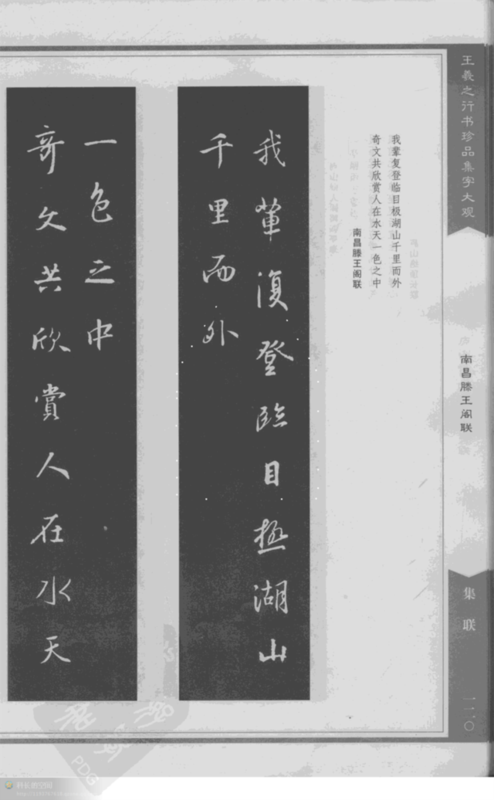 王羲之行书珍品集字大观
南昌滕王阁联
集联
一一〇
我辈复登临目极湖山千里而外
奇文共欣赏人在水天一色之中
南昌滕王阁联
我輩復登臨目極湖山
千里而外
奇文共欣賞人在水天
一色之中
PDG